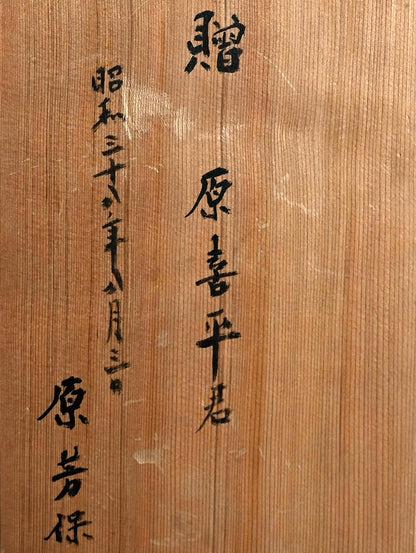 贈
原喜平君
昭和三十八年八月三日
原芳保